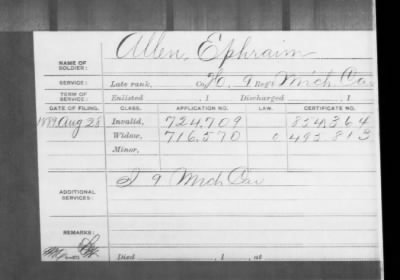 NAME OF SOLDIER: Allen, Ephraim
SERVICE: Late rank, Co. H, 9 Reg't Mich Cav
TERM OF SERVICE: Enlisted , 1 Discharged , 1
DATE OF FILING. CLASS. APPLICATION NO. LAW. CERTIFICATE NO.
1889 Aug 28 Invalid, 724.709 854.364
Widow, 716.570 493.813
Minor,
ADDITIONAL SERVICES: I 9 Mich Cav
REMARKS:
Died , 1 , at